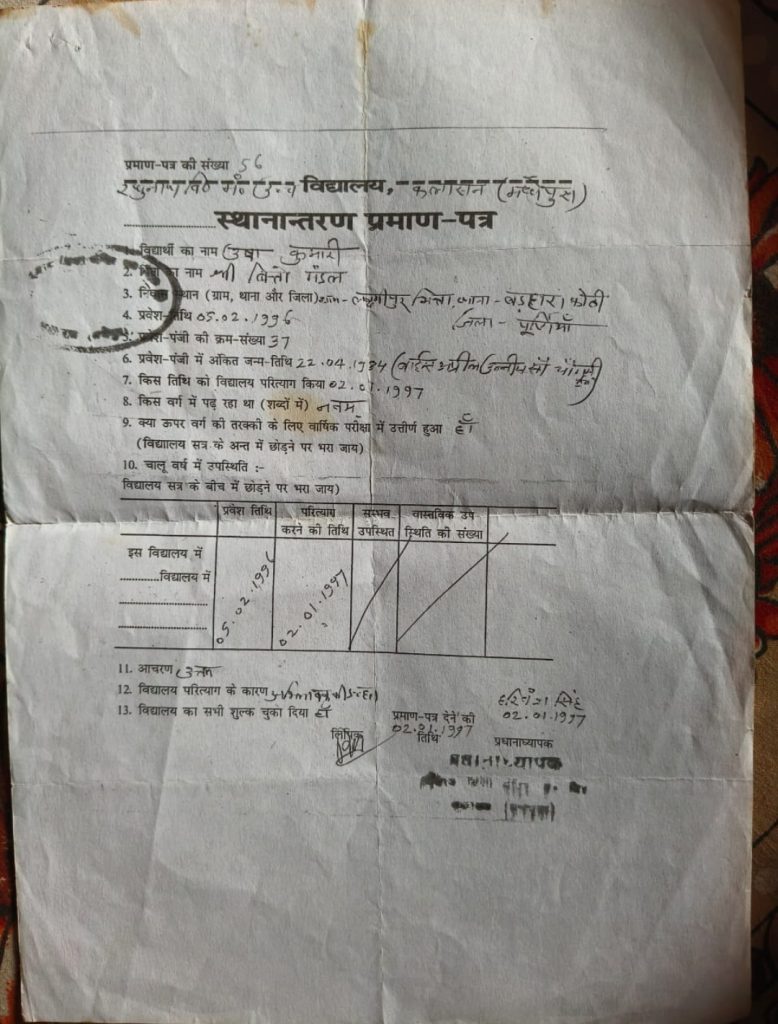 प्रमाण-पत्र की संख्या 56
विद्यालय, कलासन (मधेपुरा)
स्थानान्तरण प्रमाण-पत्र
1. विद्यार्थी का नाम उषा कुमारी
2. पिता का नाम श्री वित्तो मंडल
3. निवास स्थान (ग्राम, थाना और जिला) ग्राम- लक्ष्मीपुर भित्ता, थाना - बड़हारा कोठी
जिला - पूर्णियाँ
4. प्रवेश-तिथि 05.02.1996
5. प्रवेश-पंजी की क्रम-संख्या 37
6. प्रवेश-पंजी में अंकित जन्म-तिथि 22.04.1984 (बाईस अप्रील उन्नीस सौ चौरासी
7. किस तिथि को विद्यालय परित्याग किया 02.01.1997
8. किस वर्ग में पढ़ रहा था (शब्दों में) नवम्
9. क्या ऊपर वर्ग की तरक्की के लिए वार्षिक परीक्षा में उत्तीर्ण हुआ हाँ
(विद्याालय सत्र के अन्त में छोड़ने पर भरा जाय)
10. चालू वर्ष में उपस्थिति :-
विद्यालय सत्र के बीच में छोड़ने पर भरा जाय)
प्रवेश तिथि परित्याग सम्भव वास्तविक उप
करने की तिथि उपस्थित स्थिति की संख्या
इस विद्यालय में 05.02.1996 02.01.1997
............विद्यालय में
11. आचरण उत्तम
12. विद्यालय परित्याग के कारण
13. विद्यालय का सभी शुल्क चुका दिया हाँ
हरिवंश सिंह
02.01.1997
प्रमाण-पत्र देने की
02.01.1997
तिथि
लिपिक
प्रधानाध्यापक
प्रधानाध्यापक